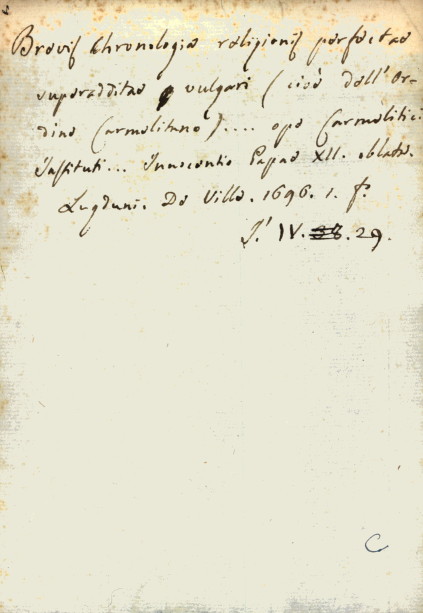 Brevis Chronologia religionis perfectae
superadditae vulgari (cioè dell'Or-
dine Carmelitano).... ope Carmelitici
Instituti... Innocentio Papae XII. oblata.
Lugduni. De Ville. 1696. 1. f.°
J.' IV. 38. 29.
C